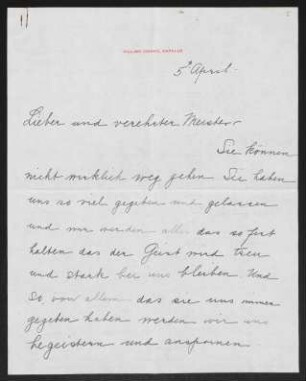 5ᵗ April.
Lieber und verehrter Meister
Sie können
nicht wirklich weg gehen. Sie haben
uns so viel gegeben und gelassen
und wir werden alles das so fest
halten das der Geist und treu
und stark bei uns bleiben. Und
so, von allem das sie uns immer
gegeben haben werden wir uns
begeistern und anspornen